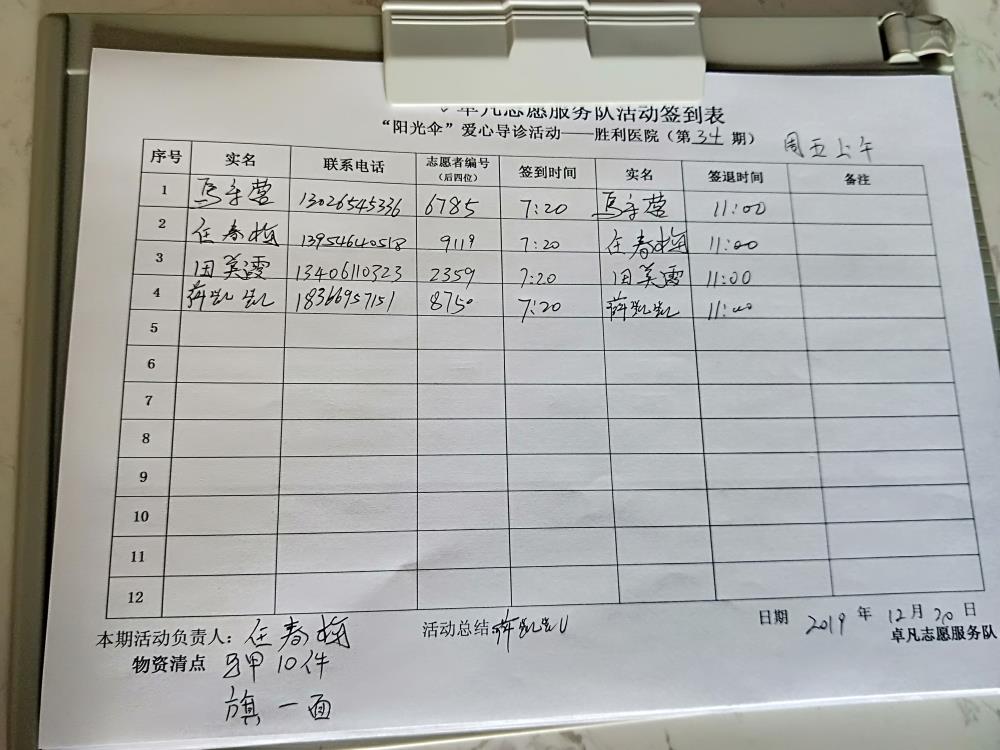 卓凡志愿服务队活动签到表
“阳光伞”爱心导诊活动——胜利医院（第 34 期）
周五上午
序号 实名 联系电话 志愿者编号（后四位） 签到时间 实名 签退时间 备注
1 13026545336 6785 7:20 11:00
2 任春梅 13954640518 9119 7:20 任春梅 11:00
3 田美霞 13406110323 2359 7:20 田美霞 11:00
4 薛凯凯 18366957151 8750 7:20 薛凯凯 11:00
5
6
7
8
9
10
11
12
本期活动负责人：任春梅 活动总结 薛凯凯 日期 2019 年 12 月 20 日
卓凡志愿服务队
物资清点 马甲 10件
旗 一面